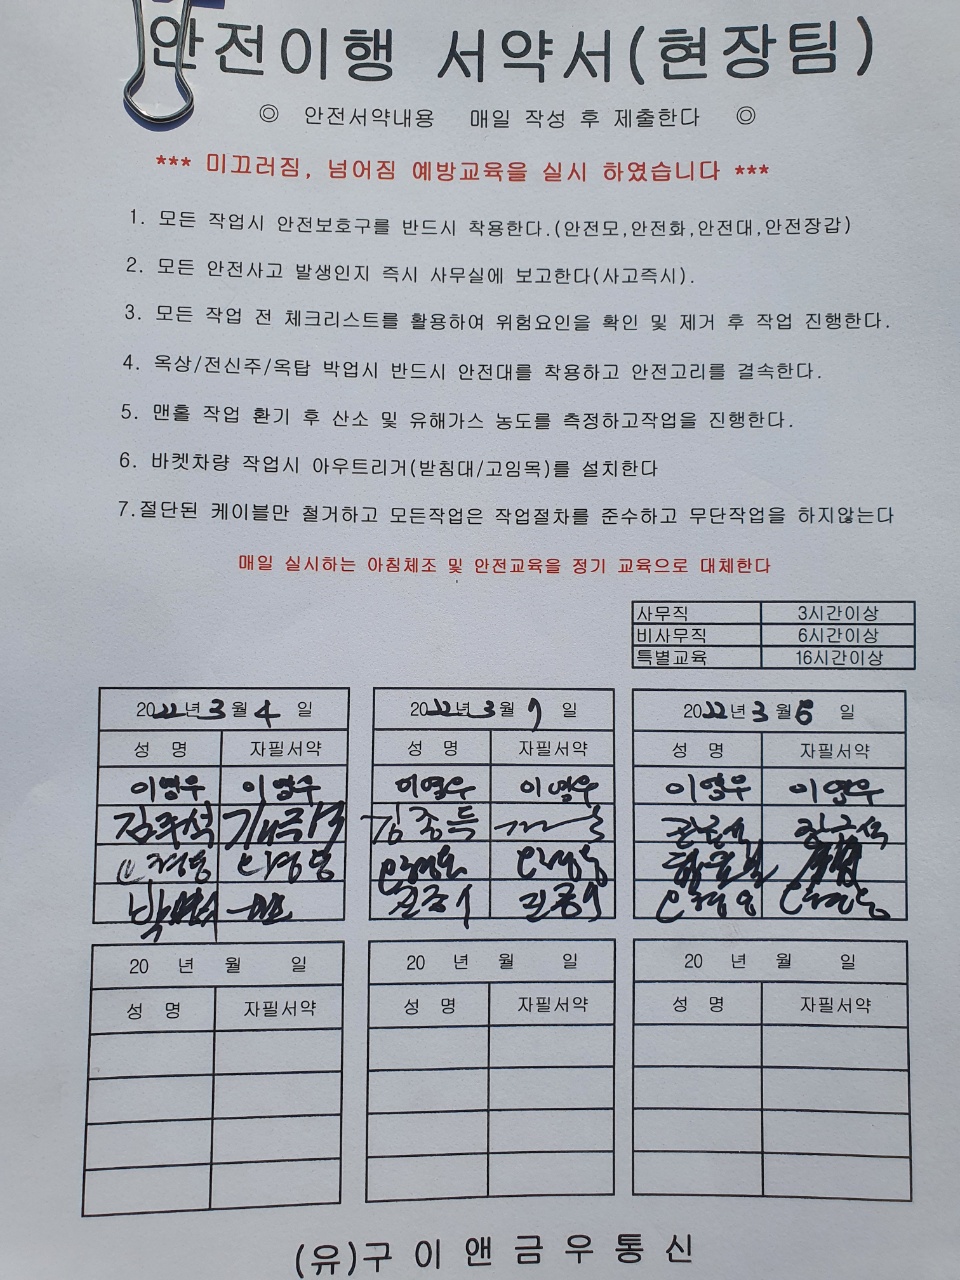 안전이행 서약서(현장팀)
◎ 안전서약내용 매일 작성 후 제출한다 ◎
*** 미끄러짐, 넘어짐 예방교육을 실시 하였습니다 ***
1. 모든 작업시 안전보호구를 반드시 착용한다.(안전모,안전화,안전대,안전장갑)
2. 모든 안전사고 발생인지 즉시 사무실에 보고한다(사고즉시).
3. 모든 작업 전 체크리스트를 활용하여 위험요인을 확인 및 제거 후 작업 진행한다.
4. 옥상/전신주/옥탑 박업시 반드시 안전대를 착용하고 안전고리를 결속한다.
5. 맨홀 작업 환기 후 산소 및 유해가스 농도를 측정하고작업을 진행한다.
6. 바켓차량 작업시 아우트리거(받침대/고임목)를 설치한다
7.절단된 케이블만 철거하고 모든작업은 작업절차를 준수하고 무단작업을 하지않는다
매일 실시하는 아침체조 및 안전교육을 정기 교육으로 대체한다
사무직 3시간이상
비사무직 6시간이상
특별교육 16시간이상
2022년 3월 4일 2022년 3월 7일 2022년 3월 일
성 명 자필서약 성 명 자필서약 성 명 자필서약
이영우 이영우 이영우 이영우 이영우 이영우
20 년 월 일 20 년 월 일 20 년 월 일
성 명 자필서약 성 명 자필서약 성 명 자필서약
(유)구이앤금우통신